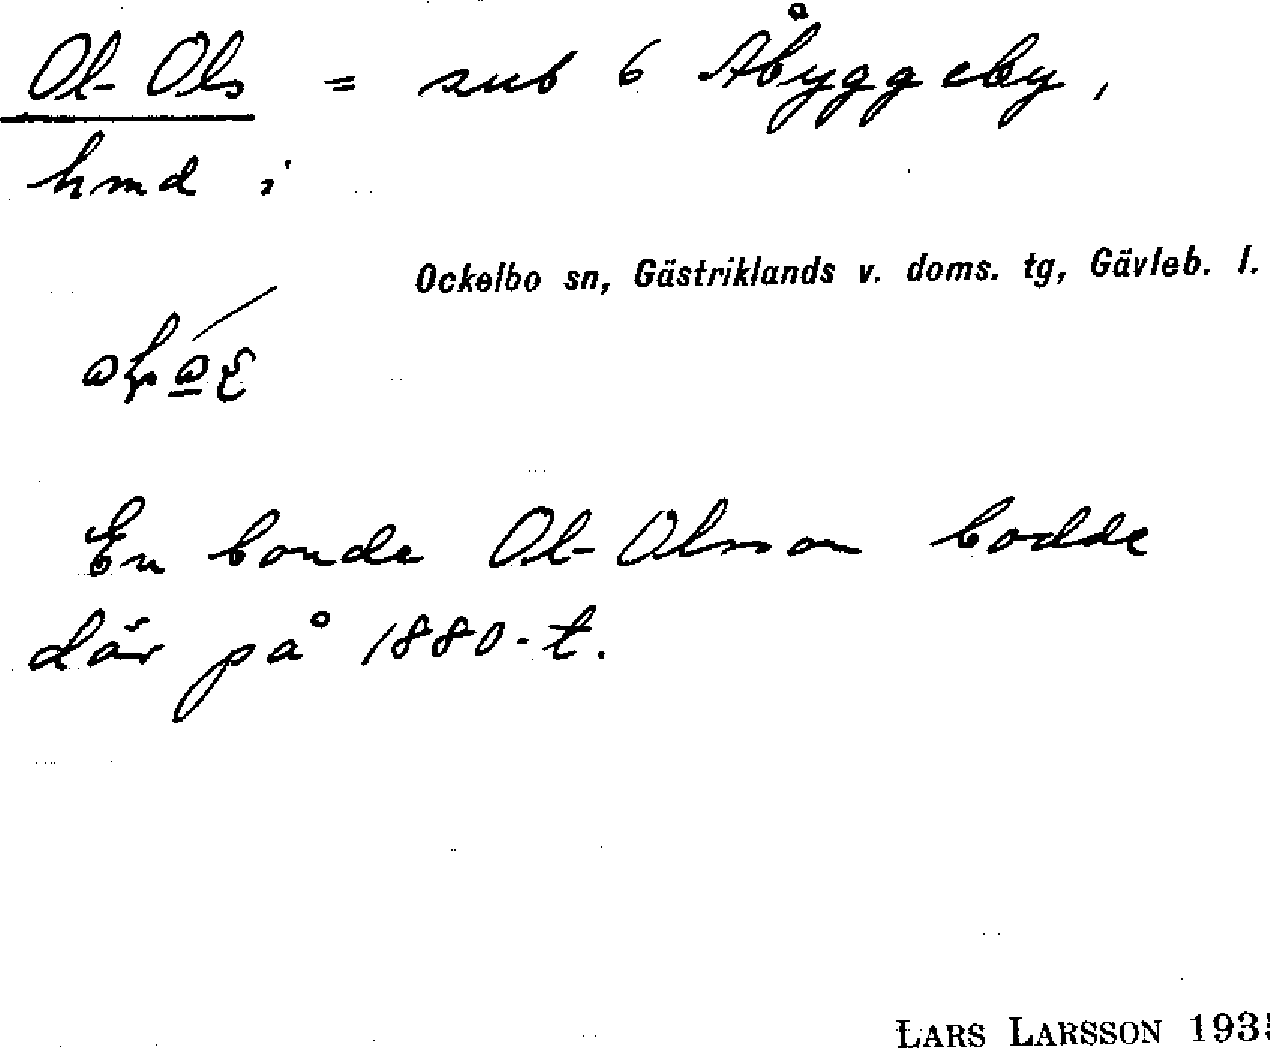 Ol-Ols = sub 6 Åbyggeby,
hmd i
Ockelbo sn, Gästriklands v. doms. tg, Gävleb. l.
En bonde Ol-Olsson bodde
där på 1880-t.
LARS LARSSON 193